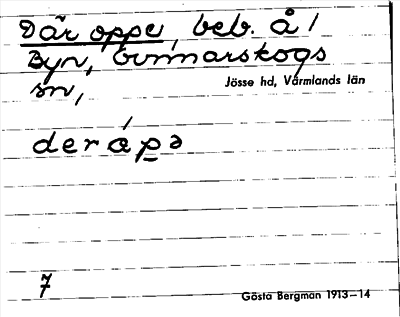 Där oppe, beb. å /
Byn, Gunnarskogs
sn,
Jösse hd, Värmlands län
derápə
7
Gösta Bergman 1913–14